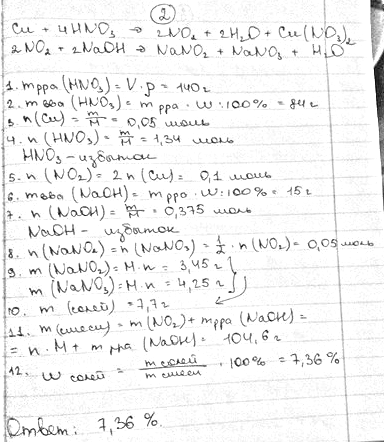 2
Cu + 4HNO₃ → 2NO₂ + 2H₂O + Cu(NO₃)₂
2NO₂ + 2NaOH → NaNO₂ + NaNO₃ + H₂O
1. m рра (HNO₃) = V · ρ = 140 г
2. m вва (HNO₃) = m рра · W : 100% = 84 г
3. n (Cu) = m/M = 0,05 моль
4. n (HNO₃) = m/M = 1,34 моль
HNO₃ – избыток
5. n (NO₂) = 2 n (Cu) = 0,1 моль
6. m вва (NaOH) = m рра · W : 100% = 15 г
7. n (NaOH) = m/M = 0,375 моль
NaOH – избыток
8. n (NaNO₂) = n (NaNO₃) = 1/2 · n (NO₂) = 0,05 моль
9. m (NaNO₂) = M · n = 3,45 г
m (NaNO₃) = M · n = 4,25 г
10. m (солей) = 7,7 г
11. m (смеси) = m (NO₂) + m рра (NaOH) =
= n · M + m рра (NaOH) = 104,6 г
12. W солей = m солей / m смеси · 100% = 7,36 %
Ответ: 7,36 %.